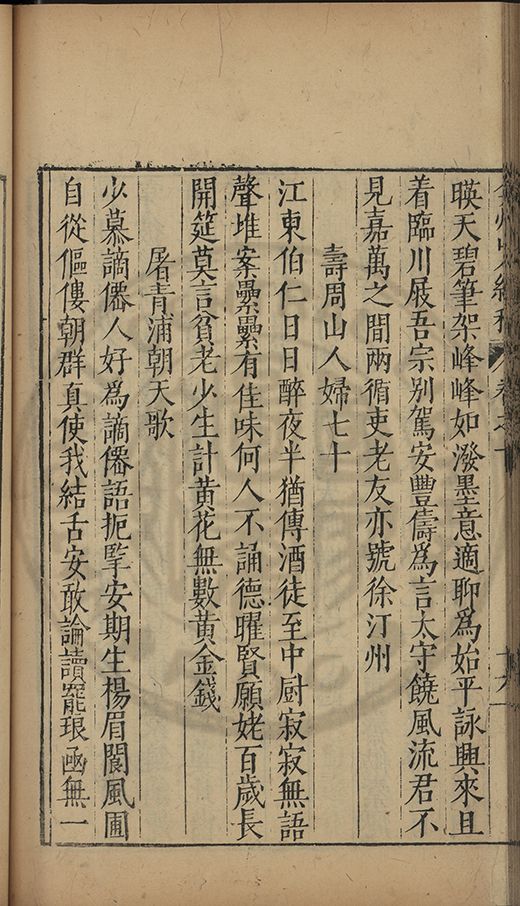 暎天碧筆架峰峰如潑墨意適聊爲始平詠興來且
着臨川屐吾宗别駕安豐儔爲言太守饒風流君不
見嘉萬之間兩循吏老友亦號徐汀州
壽周山人婦七十
江東伯仁日日醉夜半猶傳酒徒至中厨寂寂無語
聲堆案纍纍有佳味何人不誦德曜賢願姥百歲長
開筵莫言貧老少生計黄花無數黄金錢
屠青浦朝天歌
少慕謫僊人好爲謫僊語扼掔安期生楊眉閬風圃
自從傴僂朝群真使我結舌安敢論讀罷琅函無一